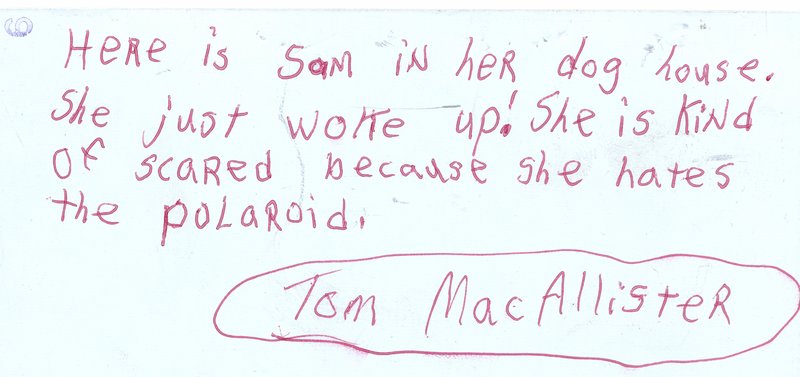 Here is Sam in her dog house.
She just woke up! She is kind
of scared because she hates
the polaroid.
Tom MacAllister